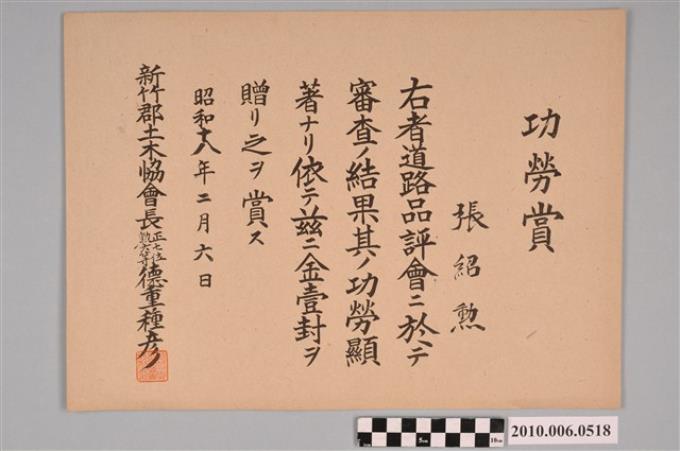 功勞賞
張紹勲
右者道路品評會ニ於テ
審査ノ結果其ノ功勞顯
著ナリ依テ茲ニ金壹封ヲ
贈リ之ヲ賞ス
昭和十八年二月六日
新竹郡土木協會長正七位勲六等德重種彥
5cm
10cm
2010.006.0518